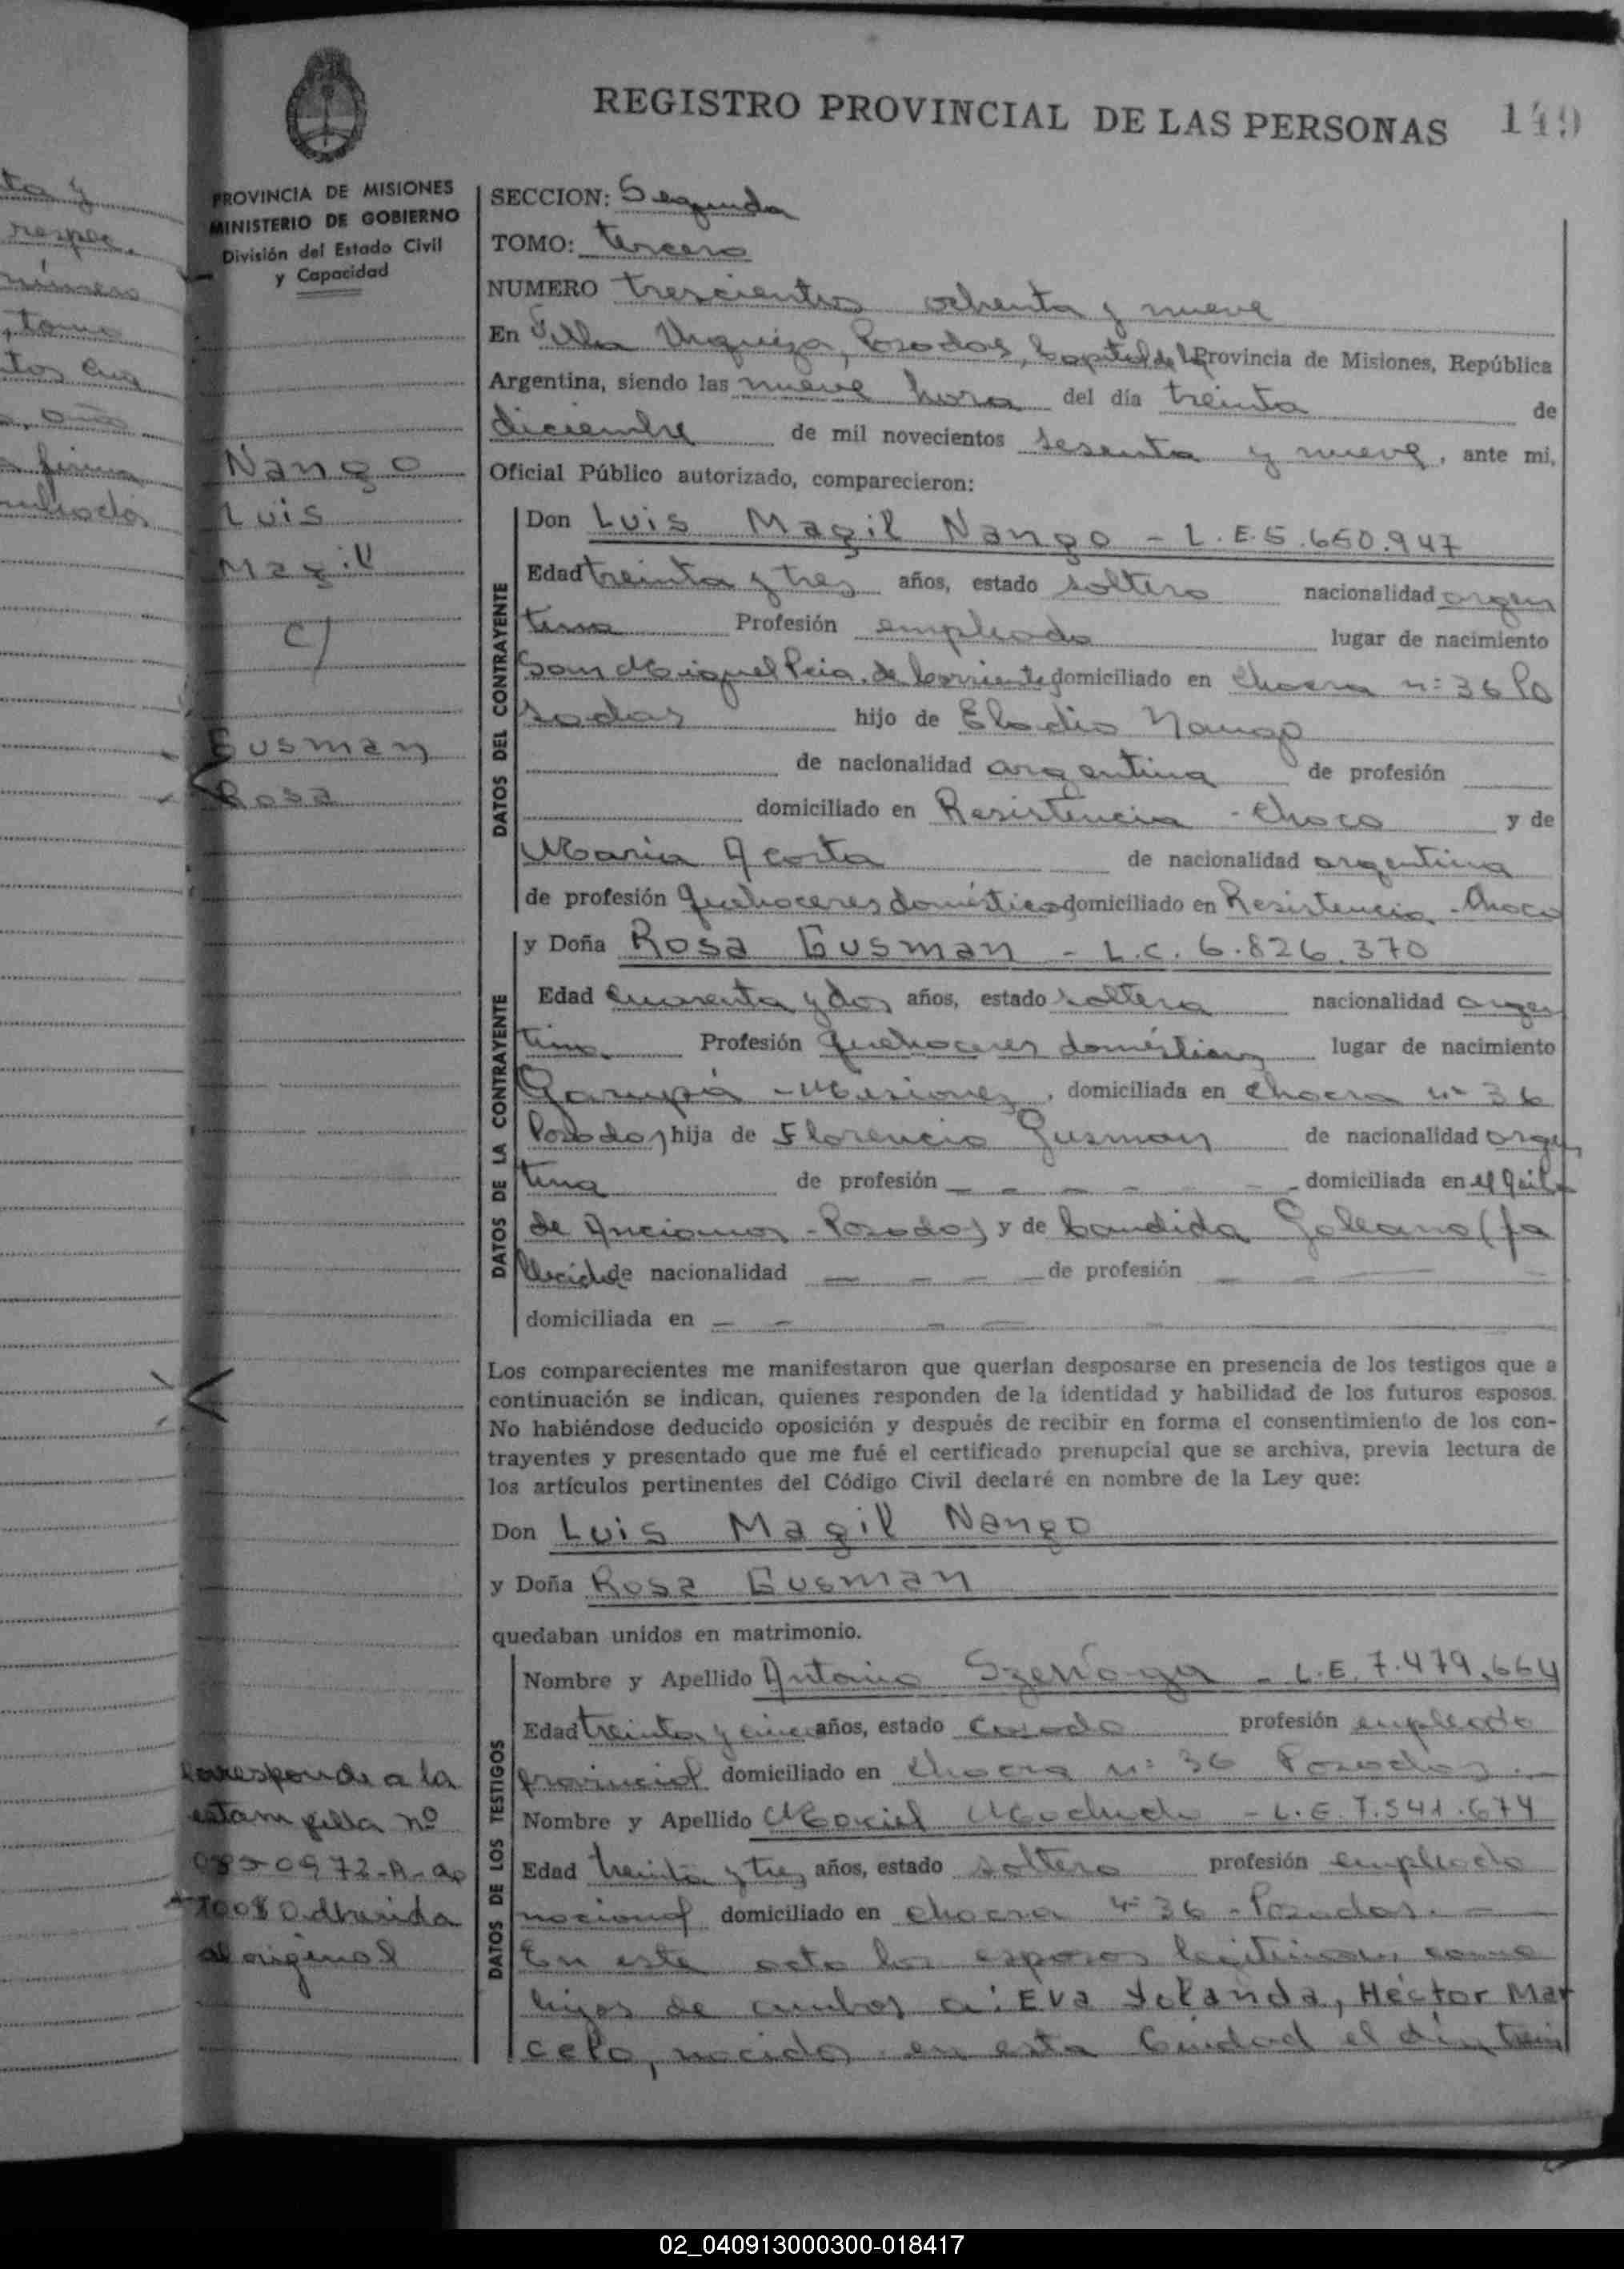 REGISTRO PROVINCIAL DE LAS PERSONAS 149
PROVINCIA DE MISIONES
MINISTERIO DE GOBIERNO
División del Estado Civil
y Capacidad
Nango
Luis
Magil
c/
Gusman
Rosa
Corresponde a la
estampilla nº
0850972-A-
adherida
al original
SECCION: Segunda
TOMO: tercero
NUMERO trescientos ochenta y nueve
En Villa Urquiza, Posadas, Capital de la Provincia de Misiones, República
Argentina, siendo las nueve hora del día treinta de
diciembre de mil novecientos sesenta y nueve, ante mi,
Oficial Público autorizado, comparecieron:
DATOS DEL CONTRAYENTE
Don Luis Magil Nango - L.E. 5.650.947
Edad treinta y tres años, estado soltero nacionalidad argen
tina Profesión empleado lugar de nacimiento
San Miguel Pcia. de Corrientes domiciliado en chacra nº 36 Po
sadas hijo de Eladio Nango
de nacionalidad argentina de profesión
domiciliado en Resistencia - Chaco y de
Maria Acosta de nacionalidad argentina
de profesión quehaceres domésticos domiciliado en Resistencia - Chaco
DATOS DE LA CONTRAYENTE
y Doña Rosa Gusman - L.C. 6.826.370
Edad cuarenta y dos años, estado soltera nacionalidad argen
tina Profesión quehaceres domésticos lugar de nacimiento
Garupá - Misiones, domiciliada en chacra nº 36
Posadas hija de Florencio Gusman de nacionalidad argen
tina de profesión - - - - - domiciliada en el Asilo
de Ancianos - Posadas y de Candida Galeano (fa
llecida de nacionalidad - - - - de profesión - - - -
domiciliada en - - - -
Los comparecientes me manifestaron que querían desposarse en presencia de los testigos que a
continuación se indican, quienes responden de la identidad y habilidad de los futuros esposos.
No habiéndose deducido oposición y después de recibir en forma el consentimiento de los con-
trayentes y presentado que me fué el certificado prenupcial que se archiva, previa lectura de
los artículos pertinentes del Código Civil declaré en nombre de la Ley que:
Don Luis Magil Nango
y Doña Rosa Gusman
quedaban unidos en matrimonio.
DATOS DE LOS TESTIGOS
Nombre y Apellido Antonio - L.E. 7.479.664
Edad treinta y cinco años, estado casado profesión empleado
provincial domiciliado en chacra nº 36 Posadas. -
Nombre y Apellido Maciel Machado - L.E. 7.541.674
Edad treinta y tres años, estado soltero profesión empleado
nacional domiciliado en chacra nº 36 - Posadas. -
En este acto los esposos legitiman como
hijos de ambos a: Eva Yolanda, Héctor Mar
celo, nacidos en esta Ciudad el día trein
02_040913000300-018417